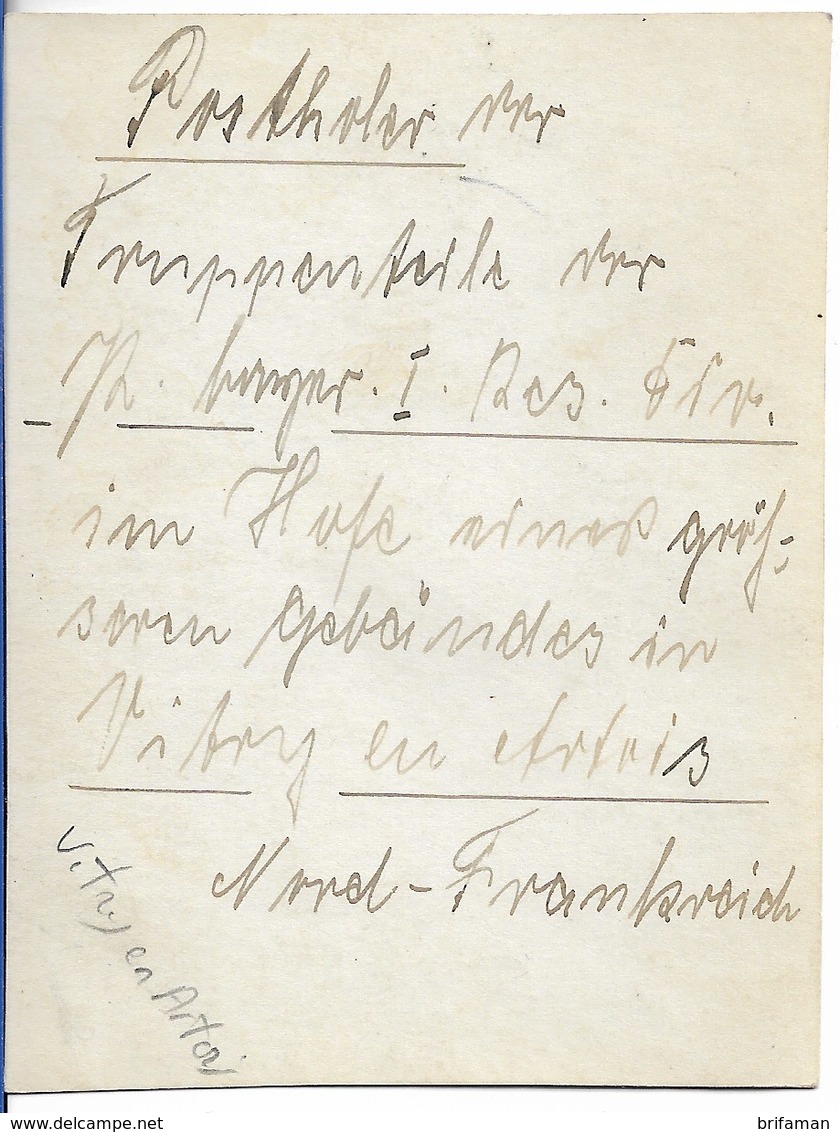 Postholer der
Truppenteile der
K. bayer. I. Res. Div.
im Hofe eines größ-
seren Gebäudes in
Vitry en Artois
Nord-Frankreich
Vitry en Artois
delcampe.net
brifaman